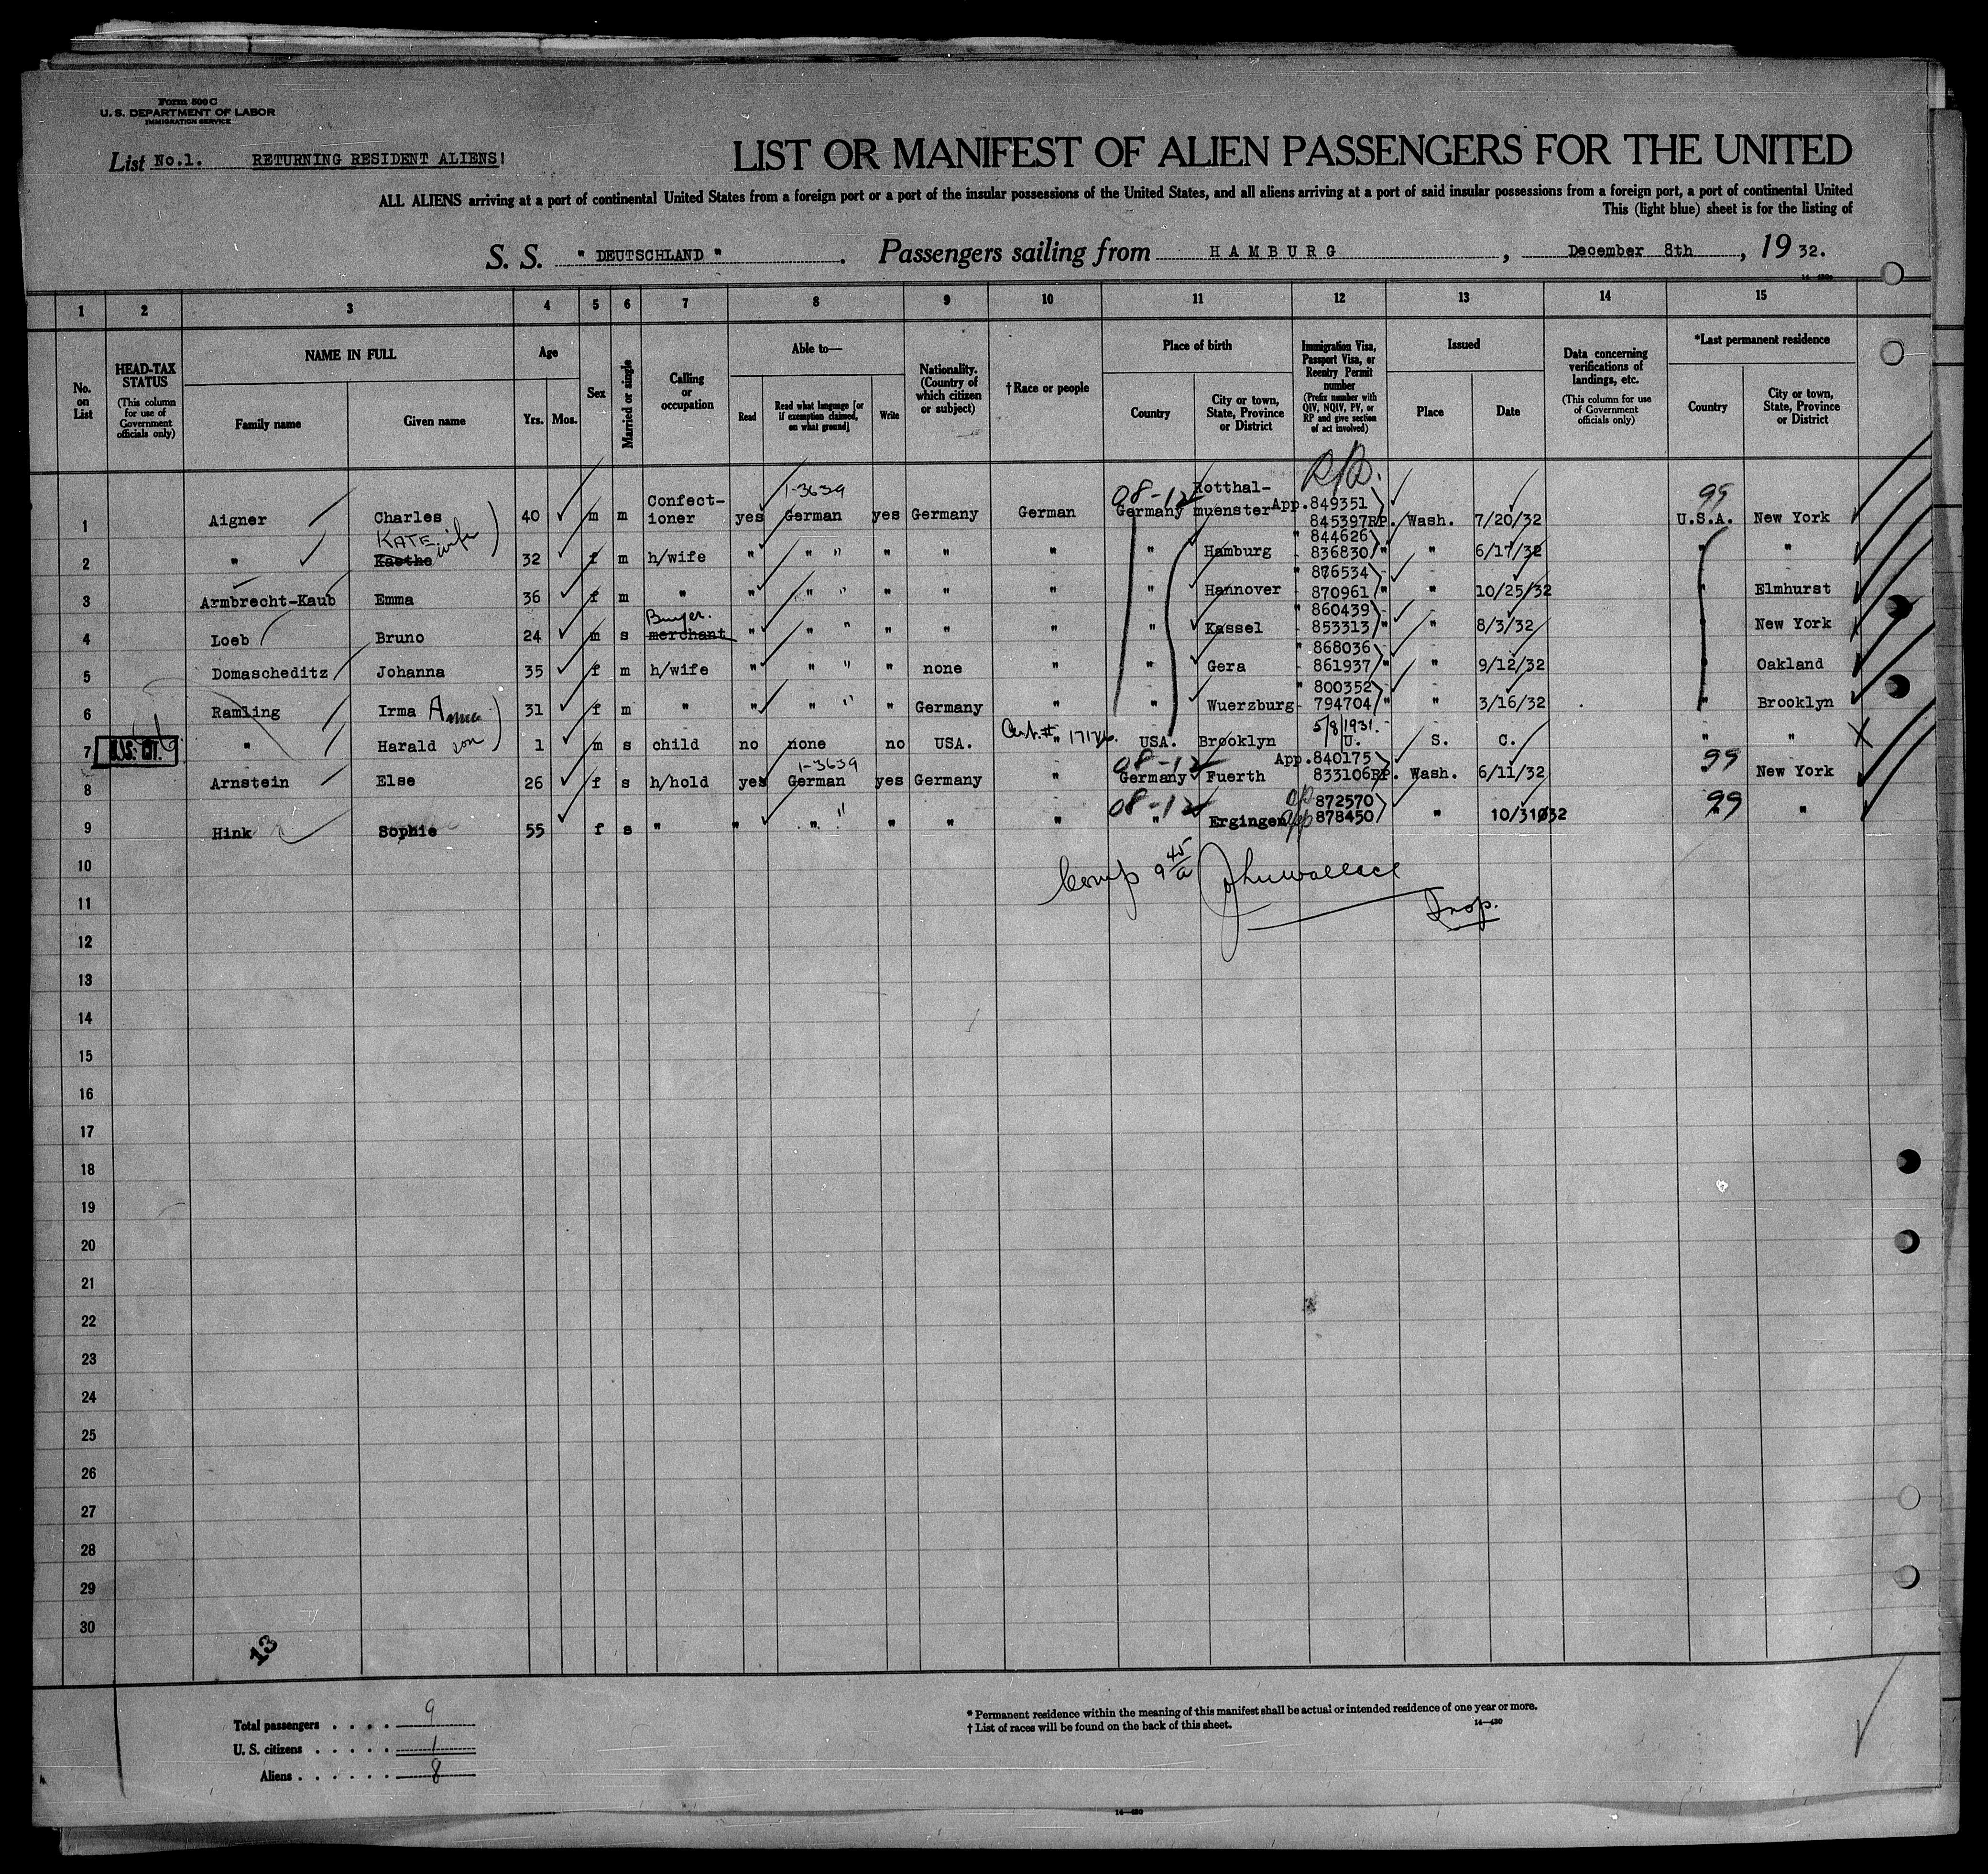 Form 500 C
U. S. DEPARTMENT OF LABOR
IMMIGRATION SERVICE
List No.1. RETURNING RESIDENT ALIENS!
LIST OR MANIFEST OF ALIEN PASSENGERS FOR THE UNITED
ALL ALIENS arriving at a port of continental United States from a foreign port or a port of the insular possessions of the United States, and all aliens arriving at a port of said insular possessions from a foreign port, a port of continental United
This (light blue) sheet is for the listing of
S. S. " DEUTSCHLAND " . Passengers sailing from HAMBURG , December 8th , 19 32.
1 2 3 4 5 6 7 8 9 10 11 12 13 14 15
No. on List
HEAD-TAX STATUS (This column for use of Government officials only)
NAME IN FULL
Family name Given name
Age
Yrs. Mos.
Sex
Married or single
Calling or occupation
Able to—
Read Read what language [or if exemption claimed, on what ground] Write
Nationality. (Country of which citizen or subject)
†Race or people
Place of birth
Country City or town, State, Province or District
Immigration Visa, Passport Visa, or Reentry Permit number (Prefix number with QIV, NQIV, PV, or RP and give section of act involved)
Issued
Place Date
Data concerning verifications of landings, etc. (This column for use of Government officials only)
*Last permanent residence
Country City or town, State, Province or District
1-3639 08-12 Rotthal- 99
1 Aigner Charles 40 m m Confect-ioner yes German yes Germany German Germany muenster App.849351 845397RP. Wash. 7/20/32 U.S.A. New York
KATE wife
2 " Kaethe 32 f m h/wife " " " " " " " Hamburg " 844626 836830 " " 6/17/32 " "
3 Armbrecht-Kaub Emma 36 f m " " " " " " " " Hannover " 876534 870961 " " 10/25/32 " Elmhurst
Buyer.
4 Loeb Bruno 24 m s merchant " " " " " " " Kassel " 860439 853313 " " 8/3/32 " New York
5 Domascheditz Johanna 35 f m h/wife " " " " none " " Gera " 868036 861937 " " 9/12/32 " Oakland
6 Ramling Irma Anna 31 f m " " " " " Germany " " Wuerzburg " 800352 794704 " " 3/16/32 " Brooklyn
7 U.S. CIT. " Harald son 1 m s child no none no USA. " Cert.# USA. Brooklyn 5/8/1931. U. S. C. " "
1-3639 08-12 99
8 Arnstein Else 26 f s h/hold yes German yes Germany " Germany Fuerth App.840175 833106RP. Wash. 6/11/32 New York
08-12 99
9 Hink Sophie 55 f s " " " " " " " " Ergingen 872570 App 878450 " 10/31/32 " "
10
Comp 9 45/a John Wallace
11
Insp.
12
13
14
15
16
17
18
19
20
21
22
23
24
25
26
27
28
29
30
13
Total passengers . . . . 9
U. S. citizens . . . . . 1
Aliens . . . . . . 8
* Permanent residence within the meaning of this manifest shall be actual or intended residence of one year or more.
† List of races will be found on the back of this sheet.
14—430